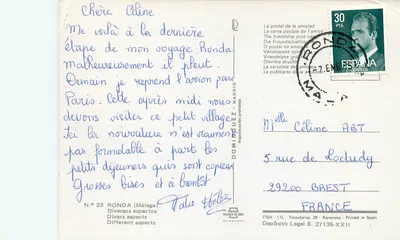 Chère Aline
Me voilà à la dernière
étape de mon voyage Ronda
malheureusement il pleut.
Demain je reprend l'avion pour
Paris. Cette après midi nous
devons visiter ce petit village
Ici la nourriture n'est vraiment
pas formidable à part les
petits déjeuners qui sont copieux
Grosses bises et à bientôt
N.º 23 RONDA (Málaga)
Diversos aspectos
Divers aspects
Different aspects
DOMINGUEZ - MADRID
La postal de la amistad
La carte postale de l'amitié
The friendship post card
30
PTA
ESPAÑA
RONDA
Melle Céline ABT
5 rue de
29200 BREST
FRANCE
Printed in Spain
Depósito Legal B. 27135-XXII